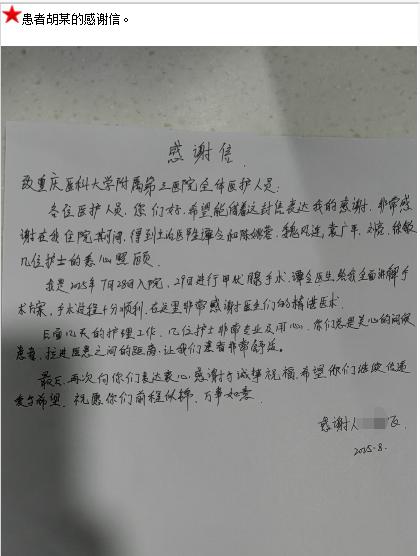 患者胡某的感谢信。
感谢信
致重庆医科大学附属第三医院全体医护人员:
各位医护人员,你们好,希望能借着这封信表达我的感谢,非常感
谢在我住院期间,得到主治医生谭令和陈姗蓉、魏凤连、袁广平、刘滢、徐敏
几位护士的悉心照顾
我是2025年7月28日入院,29日进行甲状腺手术,谭令医生给我全面讲解手
术方案,手术过程十分顺利,在这里非常感谢医生们的精湛医术
后面几天的护理工作,几位护士非常专业及用心,你们总是关心的问候
患者,拉近医患之间的距离,让我们患者非常舒适。
最后,再次向你们表达衷心感谢与诚挚祝福,希望你们继续传递
爱与希望,祝愿你们前程似锦,万事如意
感谢人
2025.8.